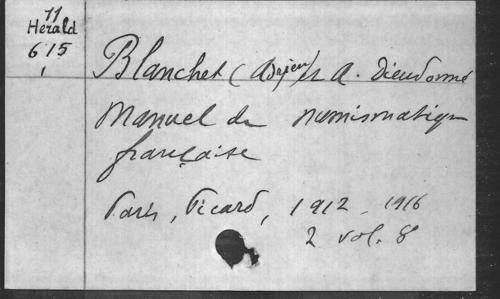 11
Herald
615
Blanchet (Adrien) et A. Dieudonné
Manuel de numismatique
française
Paris, Picard, 1912 - 1916
2 vol. 8°